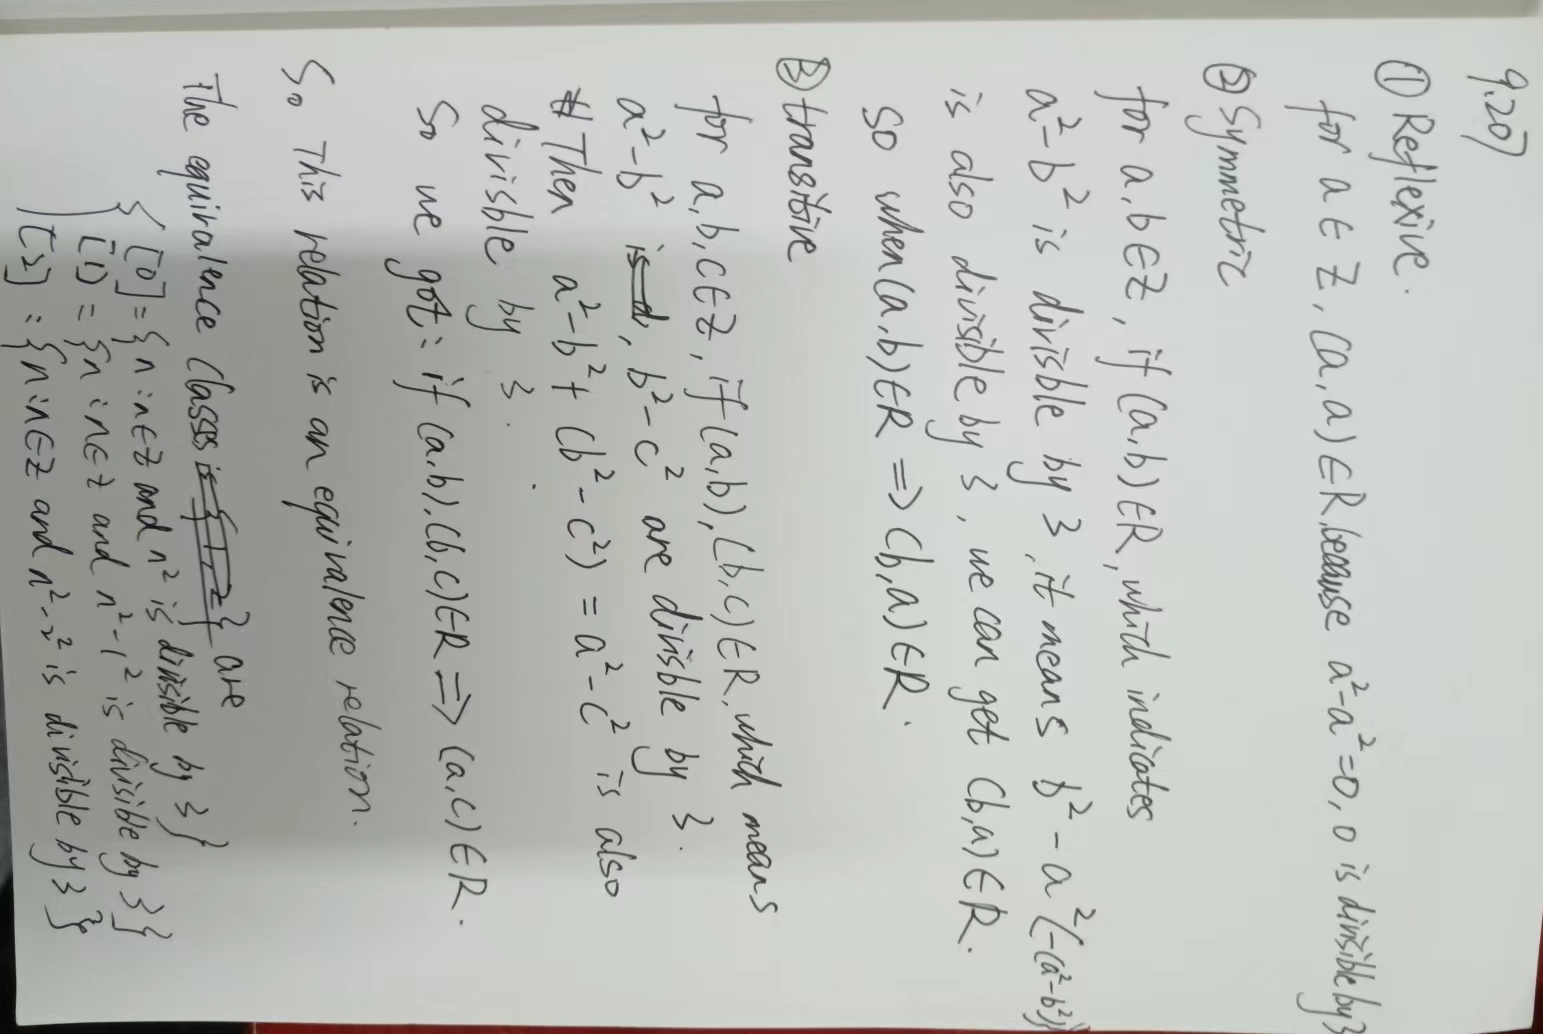 9.20)
① Reflexive.
for a ∈ Z, (a,a) ∈ R, because a²-a²=0, 0 is divisible by 3
② Symmetric
for a,b ∈ Z, if (a,b) ∈ R, which indicates
a²-b² is divisble by 3, it means b²-a² (-(a²-b²))
is also divisible by 3, we can get (b,a) ∈ R.
So when (a,b) ∈ R => (b,a) ∈ R.
③ transitive
for a,b,c ∈ Z, if (a,b), (b,c) ∈ R, which means
a²-b², b²-c² are divisble by 3.
Then a²-b²+(b²-c²) = a²-c² is also
divisble by 3.
So we got: if (a,b), (b,c) ∈ R => (a,c) ∈ R.
So This relation is an equivalence relation.
The equivalence classes are
{ [0] = {n:n∈Z and n² is divisible by 3}
[1] = {n:n∈Z and n²-1² is divisible by 3}
[2] : {n:n∈Z and n²-2² is divisible by 3}